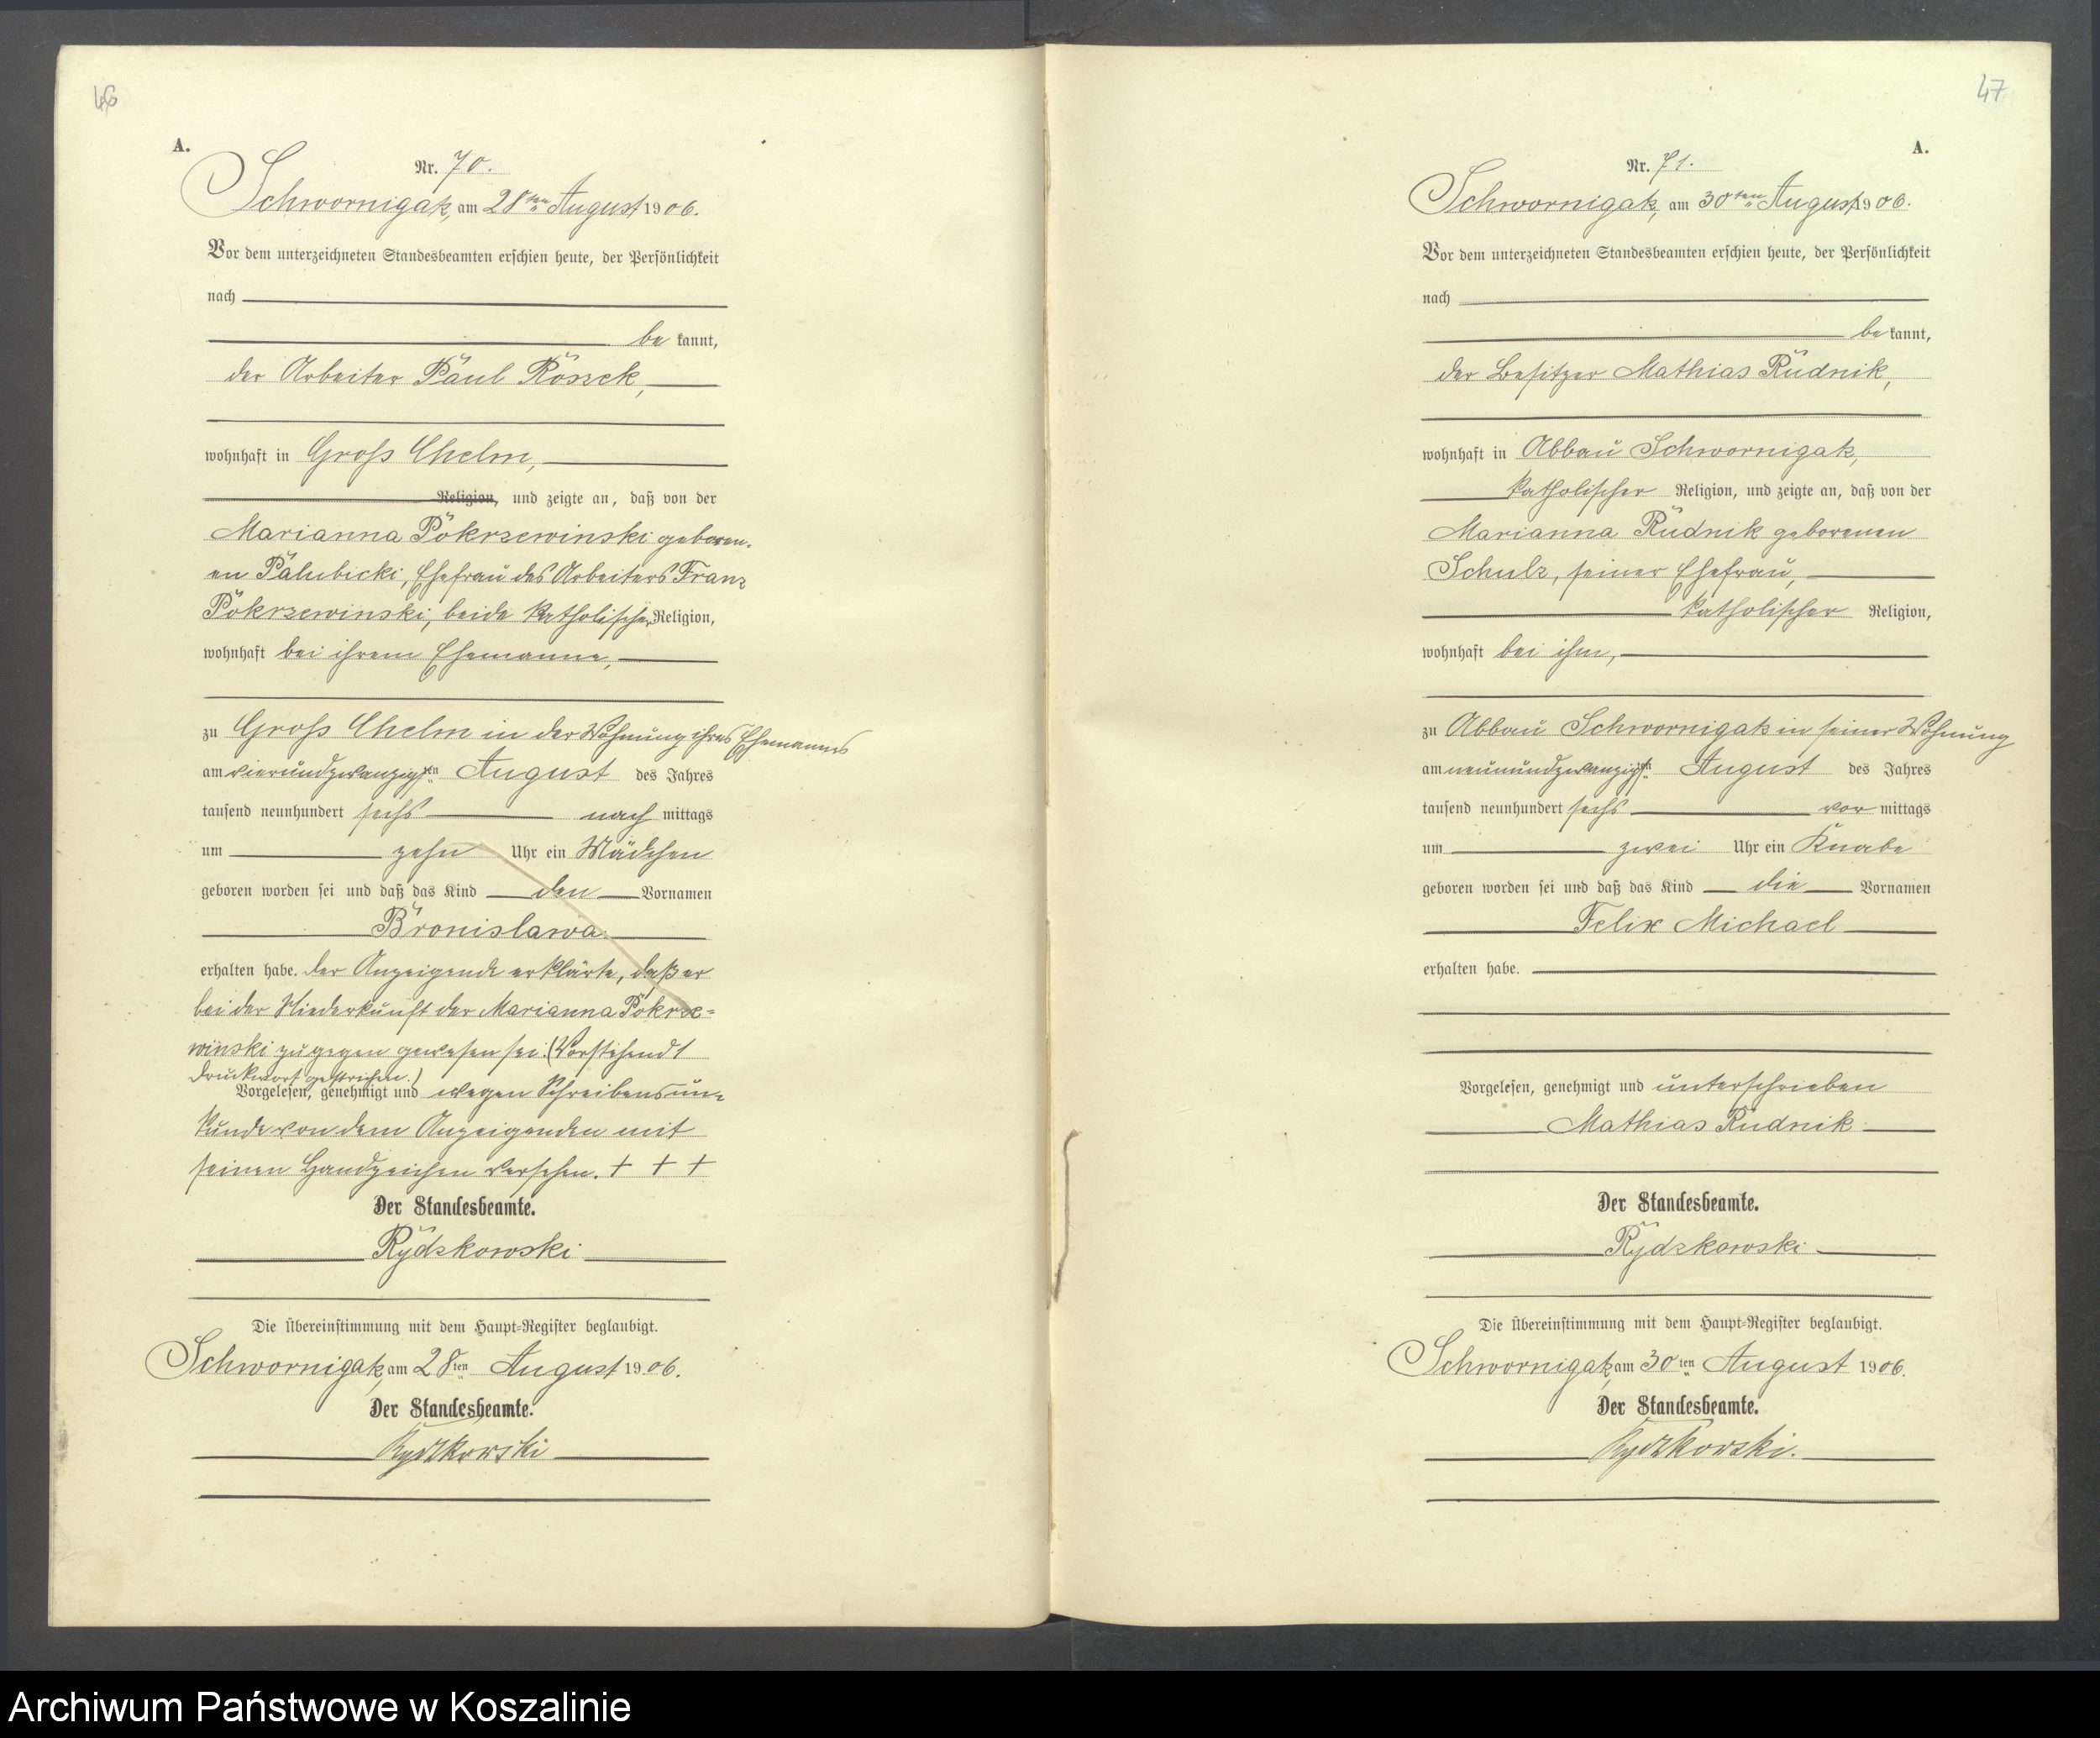 46
A.
Nr. 70.
Schwornigatz, am 28ten August 1906.
Vor dem unterzeichneten Standesbeamten erschien heute, der Persönlichkeit
nach
be kannt,
der Arbeiter Paul Rössek,
wohnhaft in Gross Chelm,
Religion, und zeigte an, daß von der
Marianna Pokrzewinski geboren-
en Palubicki, Ehefrau des Arbeiters Franz
Pokrzewinski, beide katholischer Religion,
wohnhaft bei ihrem Ehemanne,
zu Gross Chelm in der Wohnung ihres Ehemannes
am vierundzwanzigsten August des Jahres
tausend neunhundert sechs nach mittags
um zehn Uhr ein Mädchen
geboren worden sei und daß das Kind den Vornamen
Bronislawa
erhalten habe. Der Anzeigende erklärte, daß er
bei der Niederkunft der Marianna Pokrze-
winski zugegen gewesen sei. (Vorstehend 1
Druckwort gestrichen.)
Vorgelesen, genehmigt und wegen Schreibensun-
kunde von dem Anzeigenden mit
seinen Handzeichen versehen. + + +
Der Standesbeamte.
Rydzkowski
Die Übereinstimmung mit dem Haupt-Register beglaubigt.
Schwornigatz, am 28ten August 1906.
Der Standesbeamte.
Rydzkowski
47
A.
Nr. 71.
Schwornigatz, am 30ten August 1906.
Vor dem unterzeichneten Standesbeamten erschien heute, der Persönlichkeit
nach
be kannt,
der Besitzer Mathias Rudnik,
wohnhaft in Abbau Schwornigatz,
katholischer Religion, und zeigte an, daß von der
Marianna Rudnik geborenen
Schulz, seiner Ehefrau,
katholischer Religion,
wohnhaft bei ihm,
zu Abbau Schwornigatz in seiner Wohnung
am neunundzwanzigsten August des Jahres
tausend neunhundert sechs vor mittags
um zwei Uhr ein Knabe
geboren worden sei und daß das Kind die Vornamen
Felix Michael
erhalten habe.
Vorgelesen, genehmigt und unterschrieben
Mathias Rudnik
Der Standesbeamte.
Rydzkowski
Die Übereinstimmung mit dem Haupt-Register beglaubigt.
Schwornigatz, am 30ten August 1906.
Der Standesbeamte.
Rydzkowski.
Archiwum Państwowe w Koszalinie